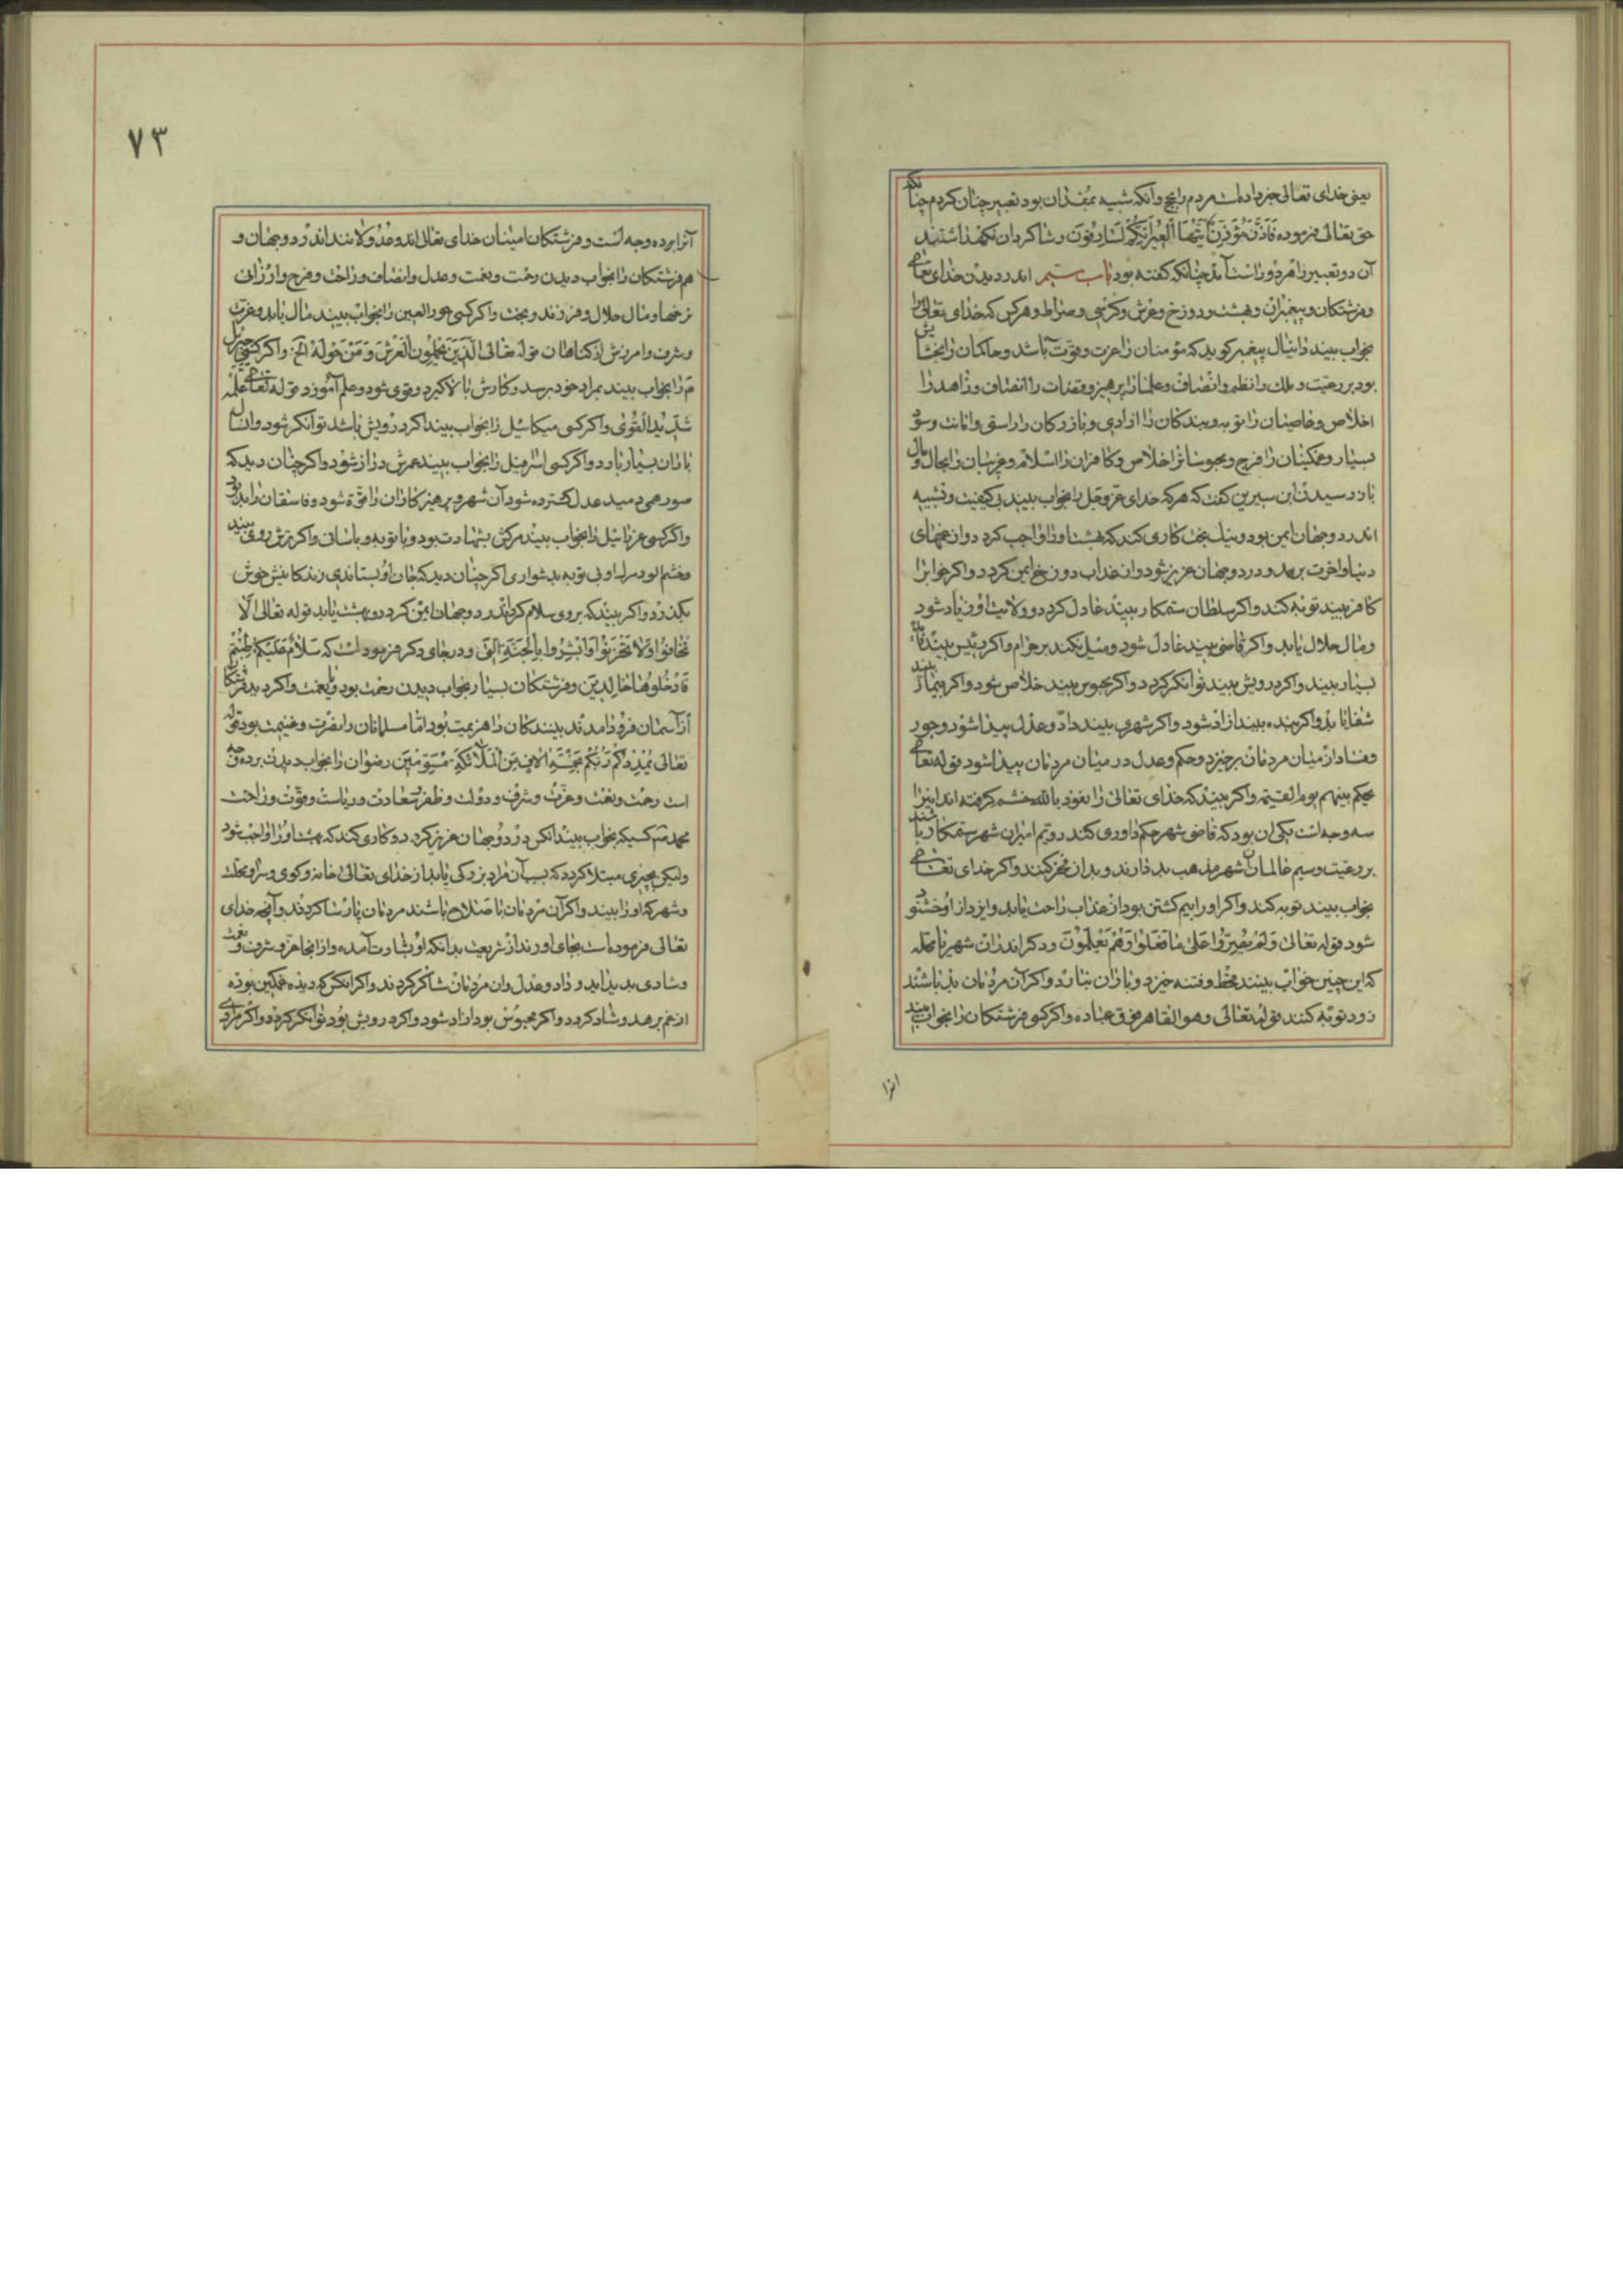 یعنی خدای تعالی خبر داده است مردم را بحج وانکه شبیه بمفسدان بود تعبیر چنان کردم چنانکه
حق تعالی فرموده فَاَذَّنَ مُؤَذِّنٌ اَیَّتُهَا الْعِیرُ اِنَّکُمْ لَسَارِقُونَ وشاکردان نکهداشتند
آن دو تعبیر را هر دو راست آمد چنانکه کفته بود باب اندر دیدن خدای تعالی
وفرشتکان وپیغمبران وبهشت ودوزخ وعرش وکرسی وصراط وهرکس که خدای تعالی را
بخواب بیند دانیال پیغمبر کوید که مؤمنان را عزت وقوت باشد وحاکمان را بخشایش
بود بر رعیت وملک را نظم وانصاف وعلما را پرهیز وقضات را انصاف وزاهد را
اخلاص وعاصیان را توبه وبندکان را ازادی وبازرکان را راستی وامانت وسود
بسیار وغمکینان را فرج ومحبوسانرا خلاص وکافران را اسلام وغریبان را بجال ومال
باز رسیدن ابن سیرین کفت که هرکه خدای عزوجل را بخواب بیند بی کیفیت وتشبیه
اندر دوجهان ایمن بود ونیک بخت کاری کند که بهشت او را واجب کردد وان غمهای
دنیا واخرت برهد ودر دوجهان عزیز شود وان عذاب دوزخ ایمن کردد واکر خوابرا
کافر بیند توبه کند واکر سلطان ستمکار بیند عادل کردد وولایت او زیاد شود
ومال حلال یابد واکر قاضی بیند عادل شود ومیل نکند بر حرام واکر رئیس بیند مال
بسیار بیند واکر درویش بیند توانکر کردد واکر محبوس بیند خلاص شود واکر بیمار بیند
شفا یابد واکر بنده بیند ازاد شود واکر شهری بیند داد وعدل پیدا شود وجور
وفساد از میان مردمان برخیزد وحکم وعدل در میان مردمان پیدا شود قوله تعالی
یحکم بینهم یوم القیمة واکر بیند که خدای تعالی را نعوذ بالله خشم کرفته اند اینرا
سه وجه است یکی ان بود که قاضی شهر حکم داوری کند دویم امیران شهر ستمکار باشند
بر رعیت وسیم عالمان شهر مذهب بد دارند وبدان فخر کنند واکر خدای تعالی
بخواب بیند توبه کند واکر او را بیم کشتن بود از عذاب راحت یابد وایزد از او خشنود
شود قوله تعالی وَلَمْ یُصِرُّوا عَلیٰ مَا فَعَلُوا وَهُمْ یَعْلَمُونَ ودکر اندران شهر یا محله
که این چنین خواب بینند قحط وفتنه خیزد وباران نبارد واکر آن مردمان بد باشند
زود توبه کنند قوله تعالی وهو القاهر فوق عباده واکر کسی فرشتکان را بخواب بیند
انرا
٧٣
آنرا بر ده وجه است وفرشتکان امینان خدای تعالی اند وعدولانند اندر دوجهان و
هم فرشتکان را بخواب دیدن رحمت ونعمت وعدل وانصاف وراحت وفرح وارزانی
نرخها ومال حلال وفرزند وبخت واکر کسی حورالعین را بخواب بیند مال یابد وعزت
وشرف وامرزش از کناهان قوله تعالی اَلَّذِینَ یَحْمِلُونَ الْعَرْشَ وَمَنْ حَوْلَهُ الخ واکر کسی جبرئیل
م را بخواب بیند بمراد خود برسد وکارش بالا کیرد وقوی شود وعلم آموزد قوله تعالی علّمه
شدید القوی واکر کسی میکائیل را بخواب بیند اکر درویش باشد توانکر شود وان سال
باران بسیار بارد واکر کسی اسرفیل را بخواب بیند عمرش دراز شود واکر چنان دید که
صور همی دمید عدل کسترده شود آن شهر وپرهیزکاران را قوة شود وفاسقان را بد بود
واکر کسی عزرائیل را بخواب بیند مرکش بشهادت بود وبا توبه وباسانی واکر ترش روی بیند
وخشم الود مرک او بی توبه بدشواری اکر چنان دید که جان او بستاندی زندکانیش خوش
بکذرد واکر بیند که بر وی سلام کرد اندر دوجهان ایمن کردد وبهشت یابد قوله تعالی اَلَّا
تَخَافُوا وَلَا تَحْزَنُوا وَاَبْشِرُوا بِالْجَنَّةِ الَّتِی ودر جای دکر فرموده است که سَلَامٌ عَلَیْکُمْ طِبْتُمْ
فَادْخُلُوهَا خَالِدِینَ وفرشتکان بسیار بخواب دیدن رحمت بود ونعمت واکر دید فرشتکان
از آسمان فرود امدند بینندکان را هزیمت بود اما مسلمانان را نصرت وغنیمت بود قوله
تعالی یُمْدِدْکُمْ رَبُّکُمْ بِخَمْسَةِ الَافٍ مِنَ الْمَلَائِکَةِ مُسَوِّمِینَ رضوان را بخواب دیدن بر ده وجه
است رحمت ونعمت وعزت وشرف ودولت وظفر وسعادت وریاست وقوت وراحت
محمد ص کسیکه بخواب بیند انکس در دوجهان عزیز کردد وکاری کند که بهشت او را واجب شود
ولیکن بچیزی مبتلا کردد که بسبب آن مراد بزرکی یابد از خدای تعالی خانه وکوی وسرا ومحلت
وشهر که او را بیند واکر آن مردمان با صلاح باشند مردمان پارسا کردند وآنچه خدای
تعالی فرموده است بجای اورند از شریعت بدانکه او بشارت آمده واز انجا عز وشرف ونعمت
وشادی بدید اید وداد وعدل وان مردمان شاکر کردند واکر انکس که دیده غمکین بوده
از غم برهد وشاد کردد واکر محبوس بود ازاد شود واکر درویش بود توانکر کردد واکر مرادی